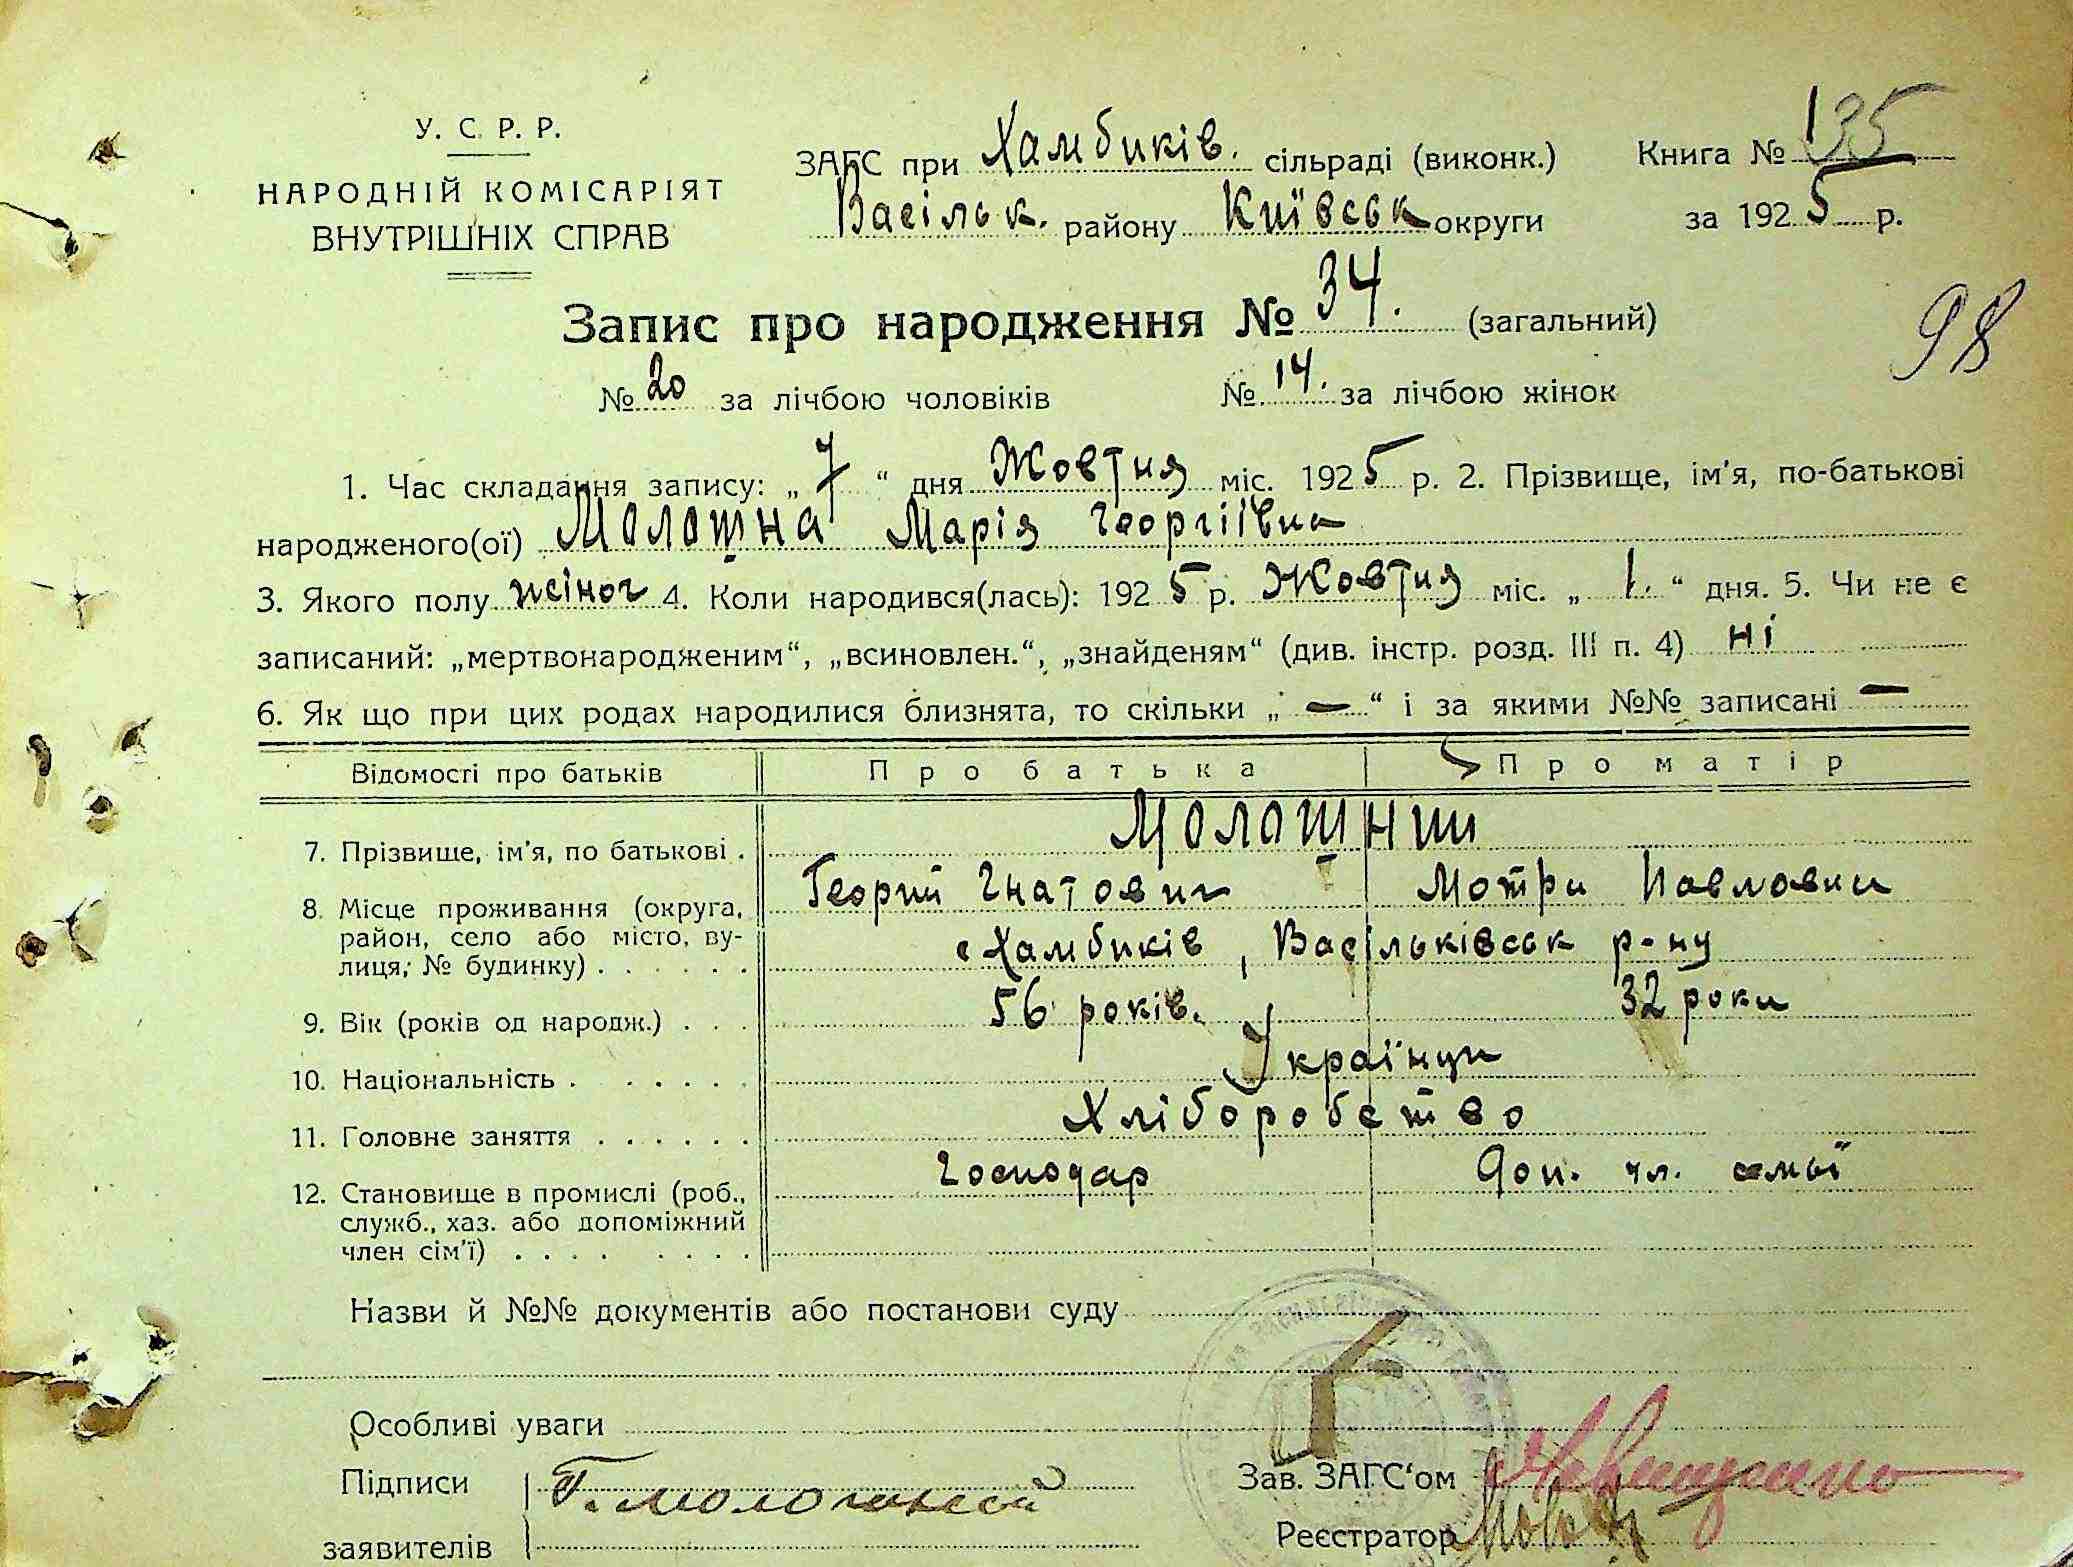 У. С. Р. Р.
НАРОДНІЙ КОМІСАРІЯТ
ВНУТРІШНІХ СПРАВ
ЗАГС при Хамбиків. сільраді (виконк.) Книга № 135
Васільк. району Київськ округи за 1925 р.
Запис про народження № 34. (загальний)
98
№ 20 за лічбою чоловіків № 14. за лічбою жінок
1. Час складання запису: „ 7 “ дня Жовтня міс. 1925 р. 2. Прізвище, ім'я, по-батькові
народженого(ої) Молошна Марія Георгіївна
3. Якого полу жіноч 4. Коли народився(лась): 1925 р. Жовтня міс. „ 1. “ дня. 5. Чи не є
записаний: „мертвонародженим“, „всиновлен.“, „знайденям“ (див. інстр. розд. III п. 4) ні
6. Як що при цих родах народилися близнята, то скільки „ — “ і за якими №№ записані —
Відомості про батьків Про батька Про матір
7. Прізвище, ім'я, по батькові . Молошни
8. Місце проживання (округа, Георгий Гнатович Мотри Павловни
район, село або місто, ву-
лиця; № будинку) . . . . . . с Хамбиків, Васільківськ р-ну
9. Вік (років од народж.) . . . 56 років. 32 роки
10. Національність . . . . . . Українци
11. Головне заняття . . . . . . Хліборобство
12. Становище в промислі (роб., Господар Доп. чл. семьї
служб., хаз. або допоміжний
член сім'ї) . . . . . . . .
Назви й №№ документів або постанови суду
Особливі уваги
Підписи Г. Молочний Зав. ЗАГС'ом
заявителів Реєстратор